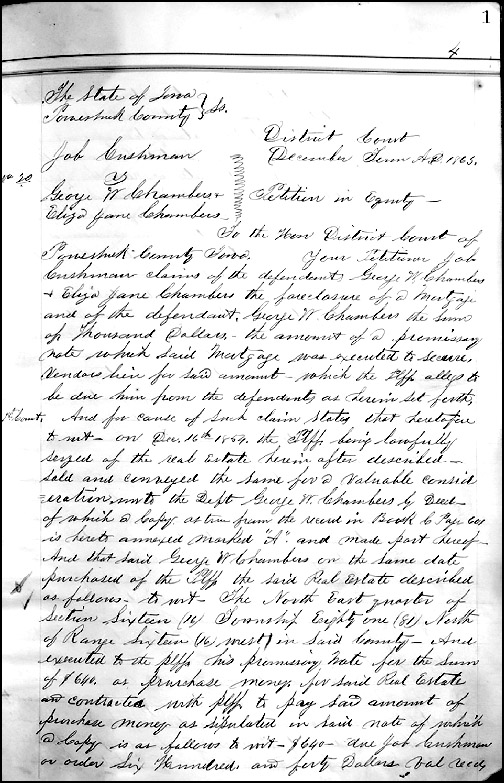 1
4
The State of Iowa
Poweshiek County } Ss.
District Court
December Term A.D. 1865.
Job Cushman
vs
George W Chambers &
Eliza Jane Chambers
Petition in Equity —
To the Hon District Court of
Poweshiek County Iowa. Your Petitioner Job
Cushman claims of the defendants George W. Chambers
& Eliza Jane Chambers the foreclosure of a Mortgage
and of the defendant, George W. Chambers the sum
of Thousand Dollars — the amount of a promissory
note which said Mortgage was executed to secure
Vendors lien for said amount — which the Plff alleges to
be due him from the defendants as herein set forth,
1st Count, And for cause of such claim states that heretofore
to wit — on Dec. 16th the Plff being lawfully
seized of the real Estate herein after described —
sold and conveyed the same for a valuable consid
eration unto the Deft George W Chambers by Deed —
of which a Copy as true from the record in Book C Page
is hereto annexed marked "A" and made part hereof —
And that said George W Chambers on the same date
purchased of the Plff the said Real Estate described
as follows — to wit — The North East quarter of
Section Sixteen (16) Township Eighty one (81) North
of Range Sixteen (16 west) in said County — And
executed to the plff his promissory Note for the Sum
of $640. as purchase money for said Real Estate
and contracted with plff to pay said amount of
purchase money as stipulated in said note of which
a Copy is as follows to wit — $640 — due Job Cushman
or order Six Hundred and forty Dollars Val recd